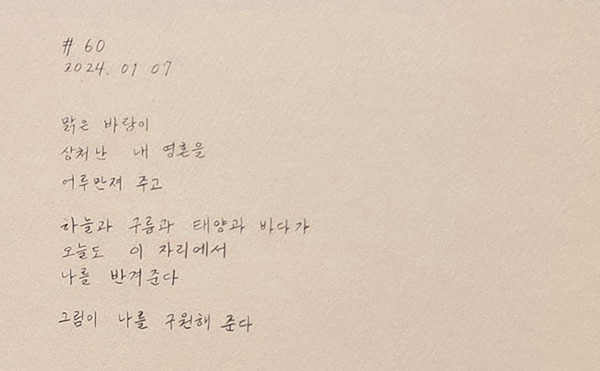 # 60
2024. 01 07
맑은 바람이
상처난 내 영혼을
어루만져 주고
하늘과 구름과 태양과 바다가
오늘도 이 자리에서
나를 반겨준다
그림이 나를 구원해 준다